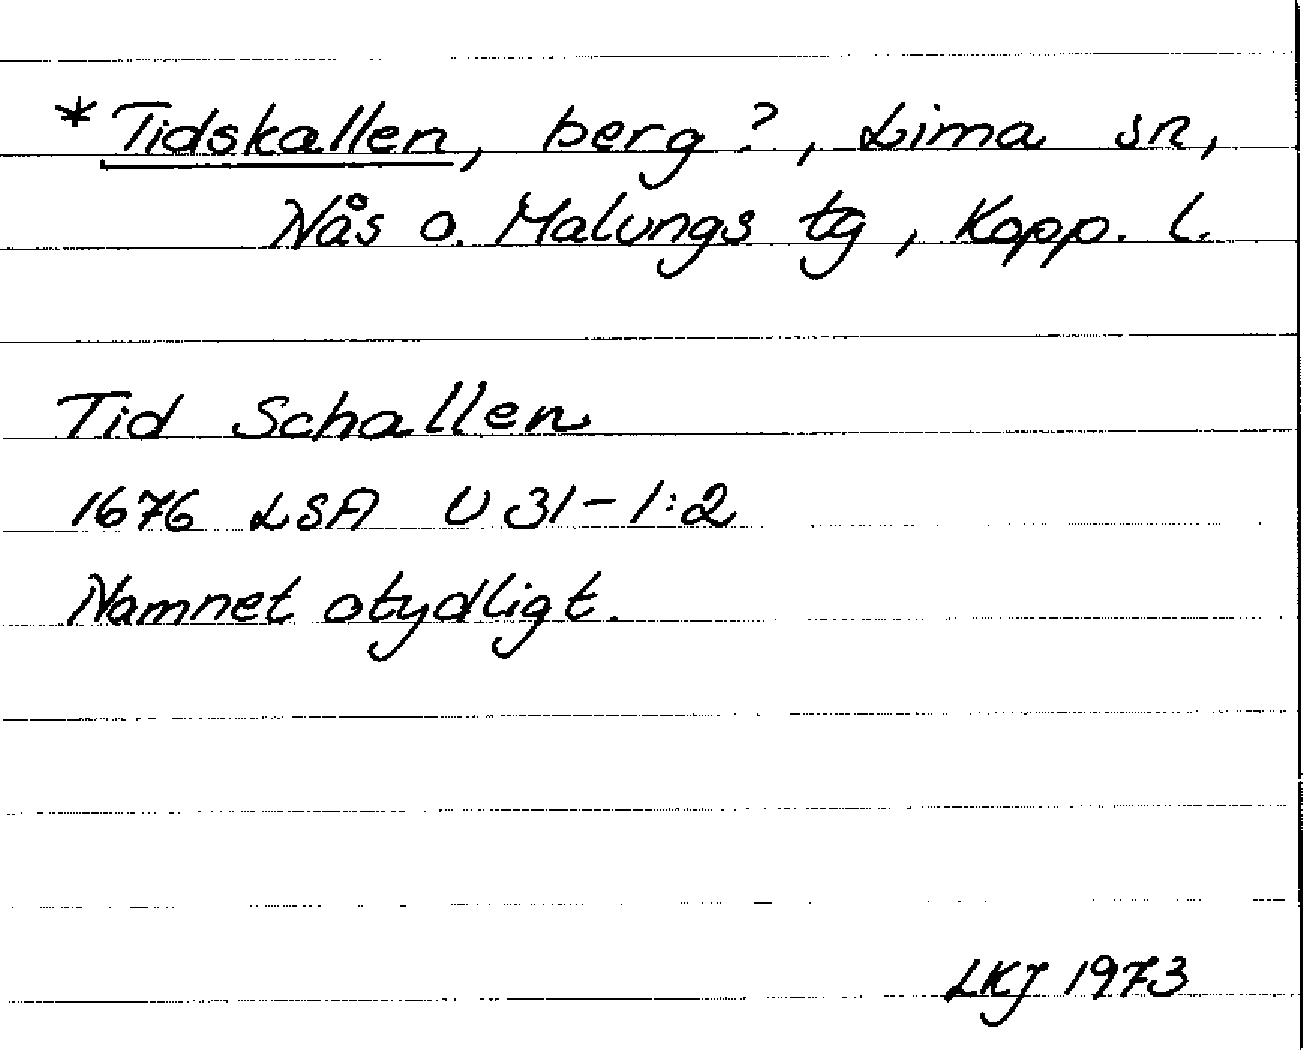 *Tidskallen, berg?, Lima sn,
Nås o. Malungs tg, Kopp. l.
Tid Schallen
1676 LSA U 31-1:2
Namnet otydligt.
LKJ 1973